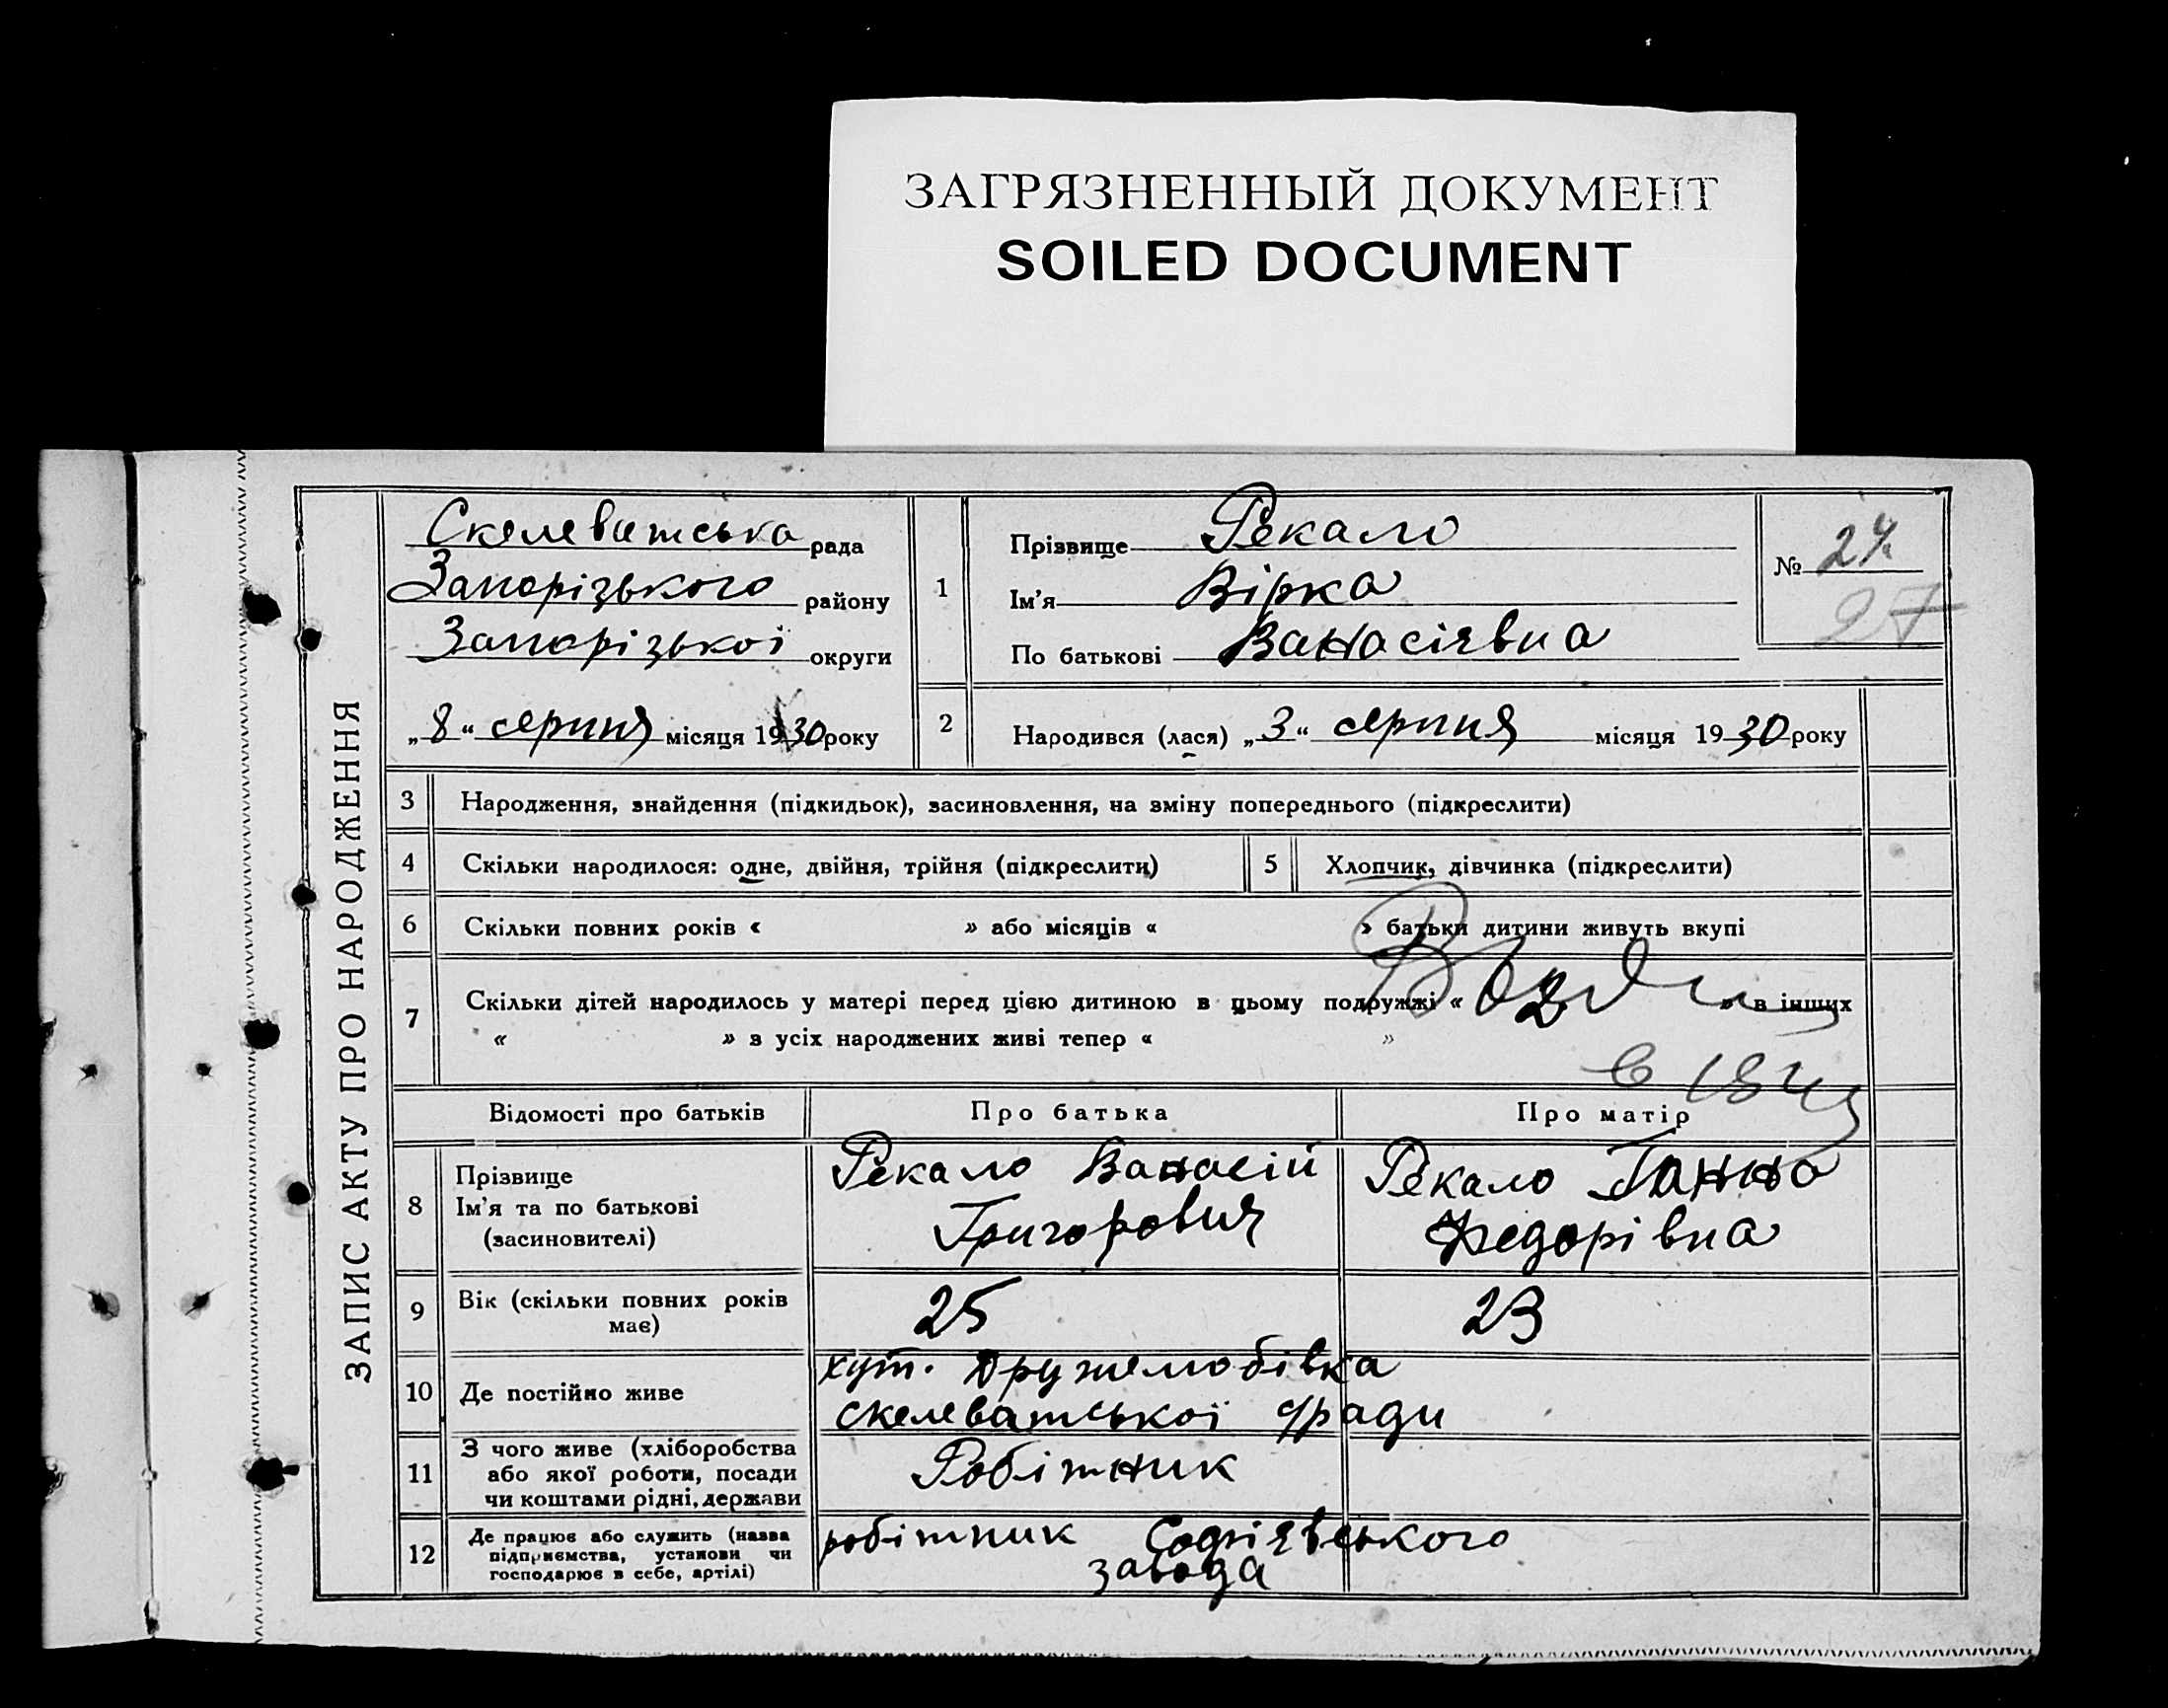 ЗАГРЯЗНЕННЫЙ ДОКУМЕНТ
SOILED DOCUMENT
ЗАПИС АКТУ ПРО НАРОДЖЕННЯ
Скелеватська рада
Запорізького району
Запорізької округи
„8“ серпня місяця 1930 року
1
Прізвище Рекало
Ім'я Вірка
По батькові Ванасіявна
№ 24
27
2 Народився (лася) „3“ серпня місяця 1930 року
3 Народження, знайдення (підкидьок), засиновлення, на зміну попереднього (підкреслити)
4 Скільки народилося: одне, двійня, трійня (підкреслити) 5 Хлопчик, дівчинка (підкреслити)
6 Скільки повних років « » або місяців « » батьки дитини живуть вкупі
7 Скільки дітей народилось у матері перед цією дитиною в цьому подружжі « 2 » в інших
« » з усіх народжених живі тепер « »
Відомості про батьків Про батька Про матір
8 Прізвище
Ім'я та по батькові
(засиновителі)
Рекало Ванасій
Григорович
Рекало Ганна
Федорівна
9 Вік (скільки повних років
має)
25 23
10 Де постійно живе
хут. Дружелюбівка
скелеватської с/ради
11 З чого живе (хліборобства
або якої роботи, посади
чи коштами рідні, держави
Робітник
12 Де працює або служить (назва
підприємства, установи чи
господарює в себе, артілі)
робітник Софіявського
завода